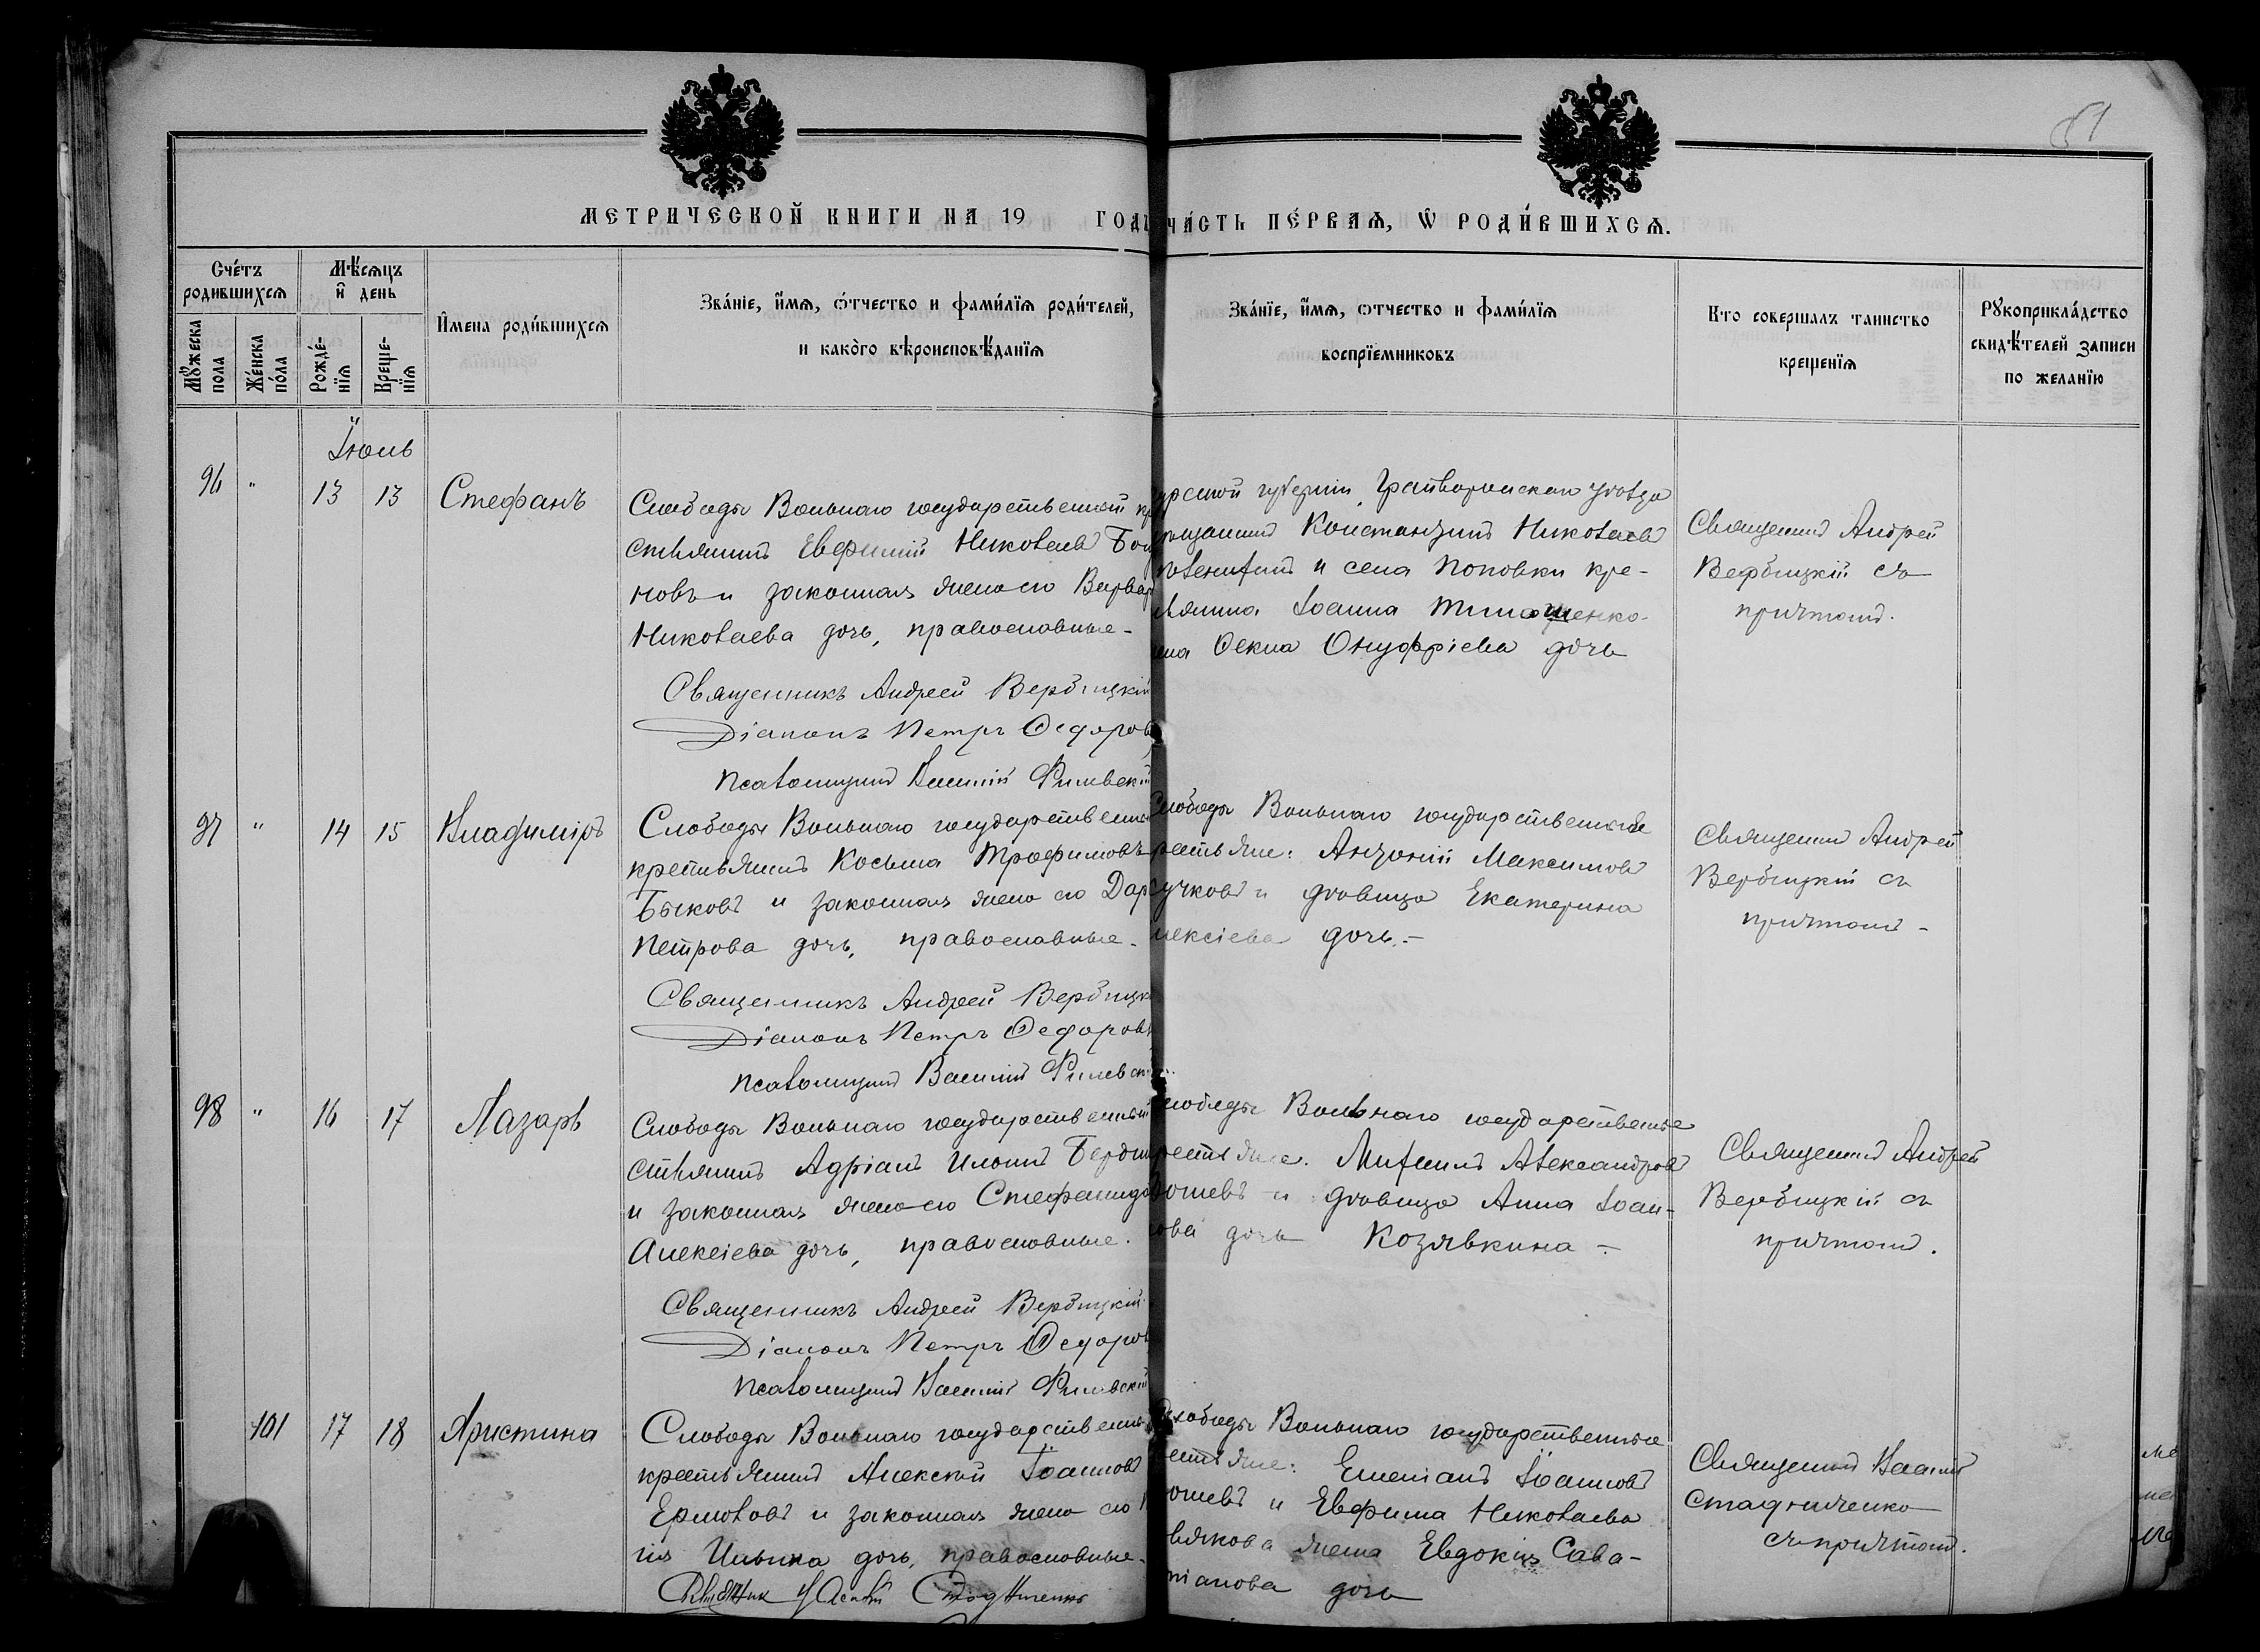 51
МЕТРИЧЕСКОЙ КНИГИ НА 19 ГОДЪ ЧА́СТЬ ПЕ́РВАЯ, Ѡ РОДИ́ВШИХСЯ.
Сче́тъ родившихся
Мѣ́сяцъ и день
Мꙋжеска пола
Же́нска по́ла
Рожде́-нїя
Креще-нїя
Имена роди́вшихся
Зва́нїе, и́мя, ѻ́тчество и фами́лїя роди́телей,
и како̀го вѣроисповѣ́данїя
Зва́нїе, и́мя, ѻтчество и фами́лїя
воспрїемниковъ
Кто совершалъ таинство
крещенїя
Рꙋкоприкла́дство
свидѣ́телей записи
по желанїю
Іюль
96 " 13 13 Стефанъ
Слободы Вольнаго государственный кр
стьянинъ Евфимій Николаевъ
новъ и законная жена его Варвар
Николаева дочь, православные-
Священникъ Андрей Вербицкій
Діаконъ Петръ Ѳедоров
Псаломщикъ Василій Филевскій
урской губерніи, Грайворонскаго уѣзда
мѣщанинъ Константинъ Николаевъ
и села Поповки кре-
стьянина Іоанна Тимошенко-
жена Ѳекла Онуфріева дочь
Священникъ Андрей
Вербицкій съ
причтомъ.
97 " 14 15 Владиміръ
Слободы Вольнаго государственный
крестьянинъ Косьма Трофимовъ
Быковъ и законная жена его Дар
Петрова дочь, православные.
Священникъ Андрей Вербицк
Діаконъ Петръ Ѳедоровъ
Псаломщикъ Василій Филевск
Слободы Вольнаго государственные
рестьяне: Антоній Максимовъ
учковъ и дѣвица Екатерина
лексіева дочь.-
Священникъ Андрей
Вербицкій съ
причтомъ-
98 " 16 17 Лазарь
Слободы Вольнаго государственный
стьянинъ Адріанъ Ильинъ
и законная жена его Стефанида
Алексіева дочь, православные.
Священникъ Андрей Вербицкій
Діаконъ Петръ Ѳедоров
Псаломщикъ Василій Филевскій
лободы Вольнаго государственные
рестьяне. Михаилъ Александровъ
ошевъ и дѣвица Анна Іоан-
ова дочь Козявкина-
Священникъ Андрей
Вербицкій съ
причтомъ.
101 17 18 Христина
Слободы Вольнаго государственный
крестьянинъ Алексѣй Іоанновъ
Ермоловъ и законная жена его
нія Ильина дочь, православные.
Священник Василій Стадниченко
Слободы Вольнаго государственные
рестьяне: Емеліанъ Іоанновъ
ошевъ и Евфима Николаева
лякова жена Евдокія Сава-
тіанова дочь
Священникъ Василій
Стадниченко
съ причтомъ.